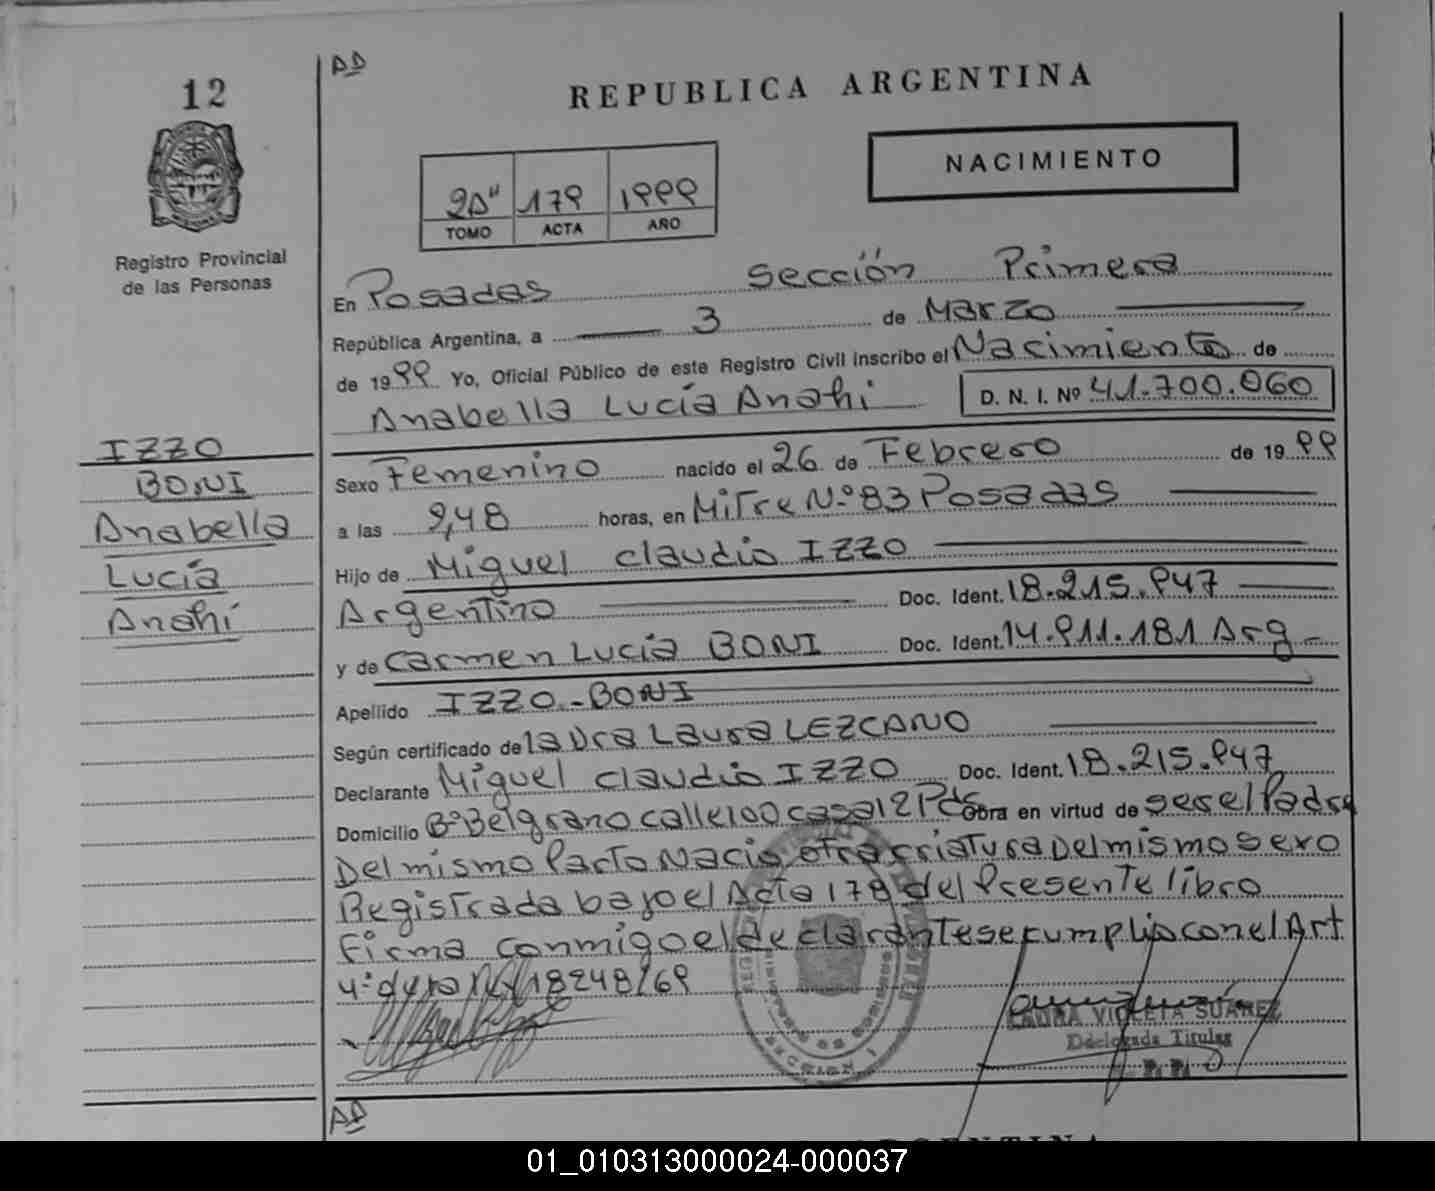 12
AD
REPUBLICA ARGENTINA
NACIMIENTO
2D" 179 1999
TOMO ACTA AÑO
Registro Provincial
de las Personas
En Posadas Sección Primera
República Argentina, a 3 de Marzo
de 1999 Yo, Oficial Público de este Registro Civil inscribo el Nacimiento de
Anabella Lucía Anahi D. N. I. Nº 41.700.060
IZZO
BONI
Anabella
Lucía
Anahí
Sexo Femenino nacido el 26 de Febrero de 1999
a las 9,48 horas, en Mitre Nº 83 Posadas
Hijo de Miguel Claudio IZZO
Argentino Doc. Ident. 18.215.947
y de Carmen Lucía BONI Doc. Ident. 14.911.181 Arg
Apellido IZZO-BONI
Según certificado de la Dra Laura LEZCANO
Declarante Miguel Claudio IZZO Doc. Ident. 18.215.947
Domicilio Bº Belgrano calle 100 casa 12 Pds Obra en virtud de ser el Padre
Del mismo Parto Nacio otra criatura Del mismo sexo
Registrada bajo el Acta 178 del Presente libro
Firma conmigo el declarante se cumplio con el Art
4º de la Ley 18248/69
LAURA VIOLETA SUAREZ
Delegada Titular
R. P. P.
SECCION 1
AD
01_010313000024-000037